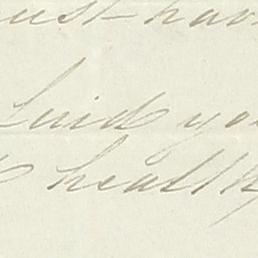 ust have
Luid yo
health